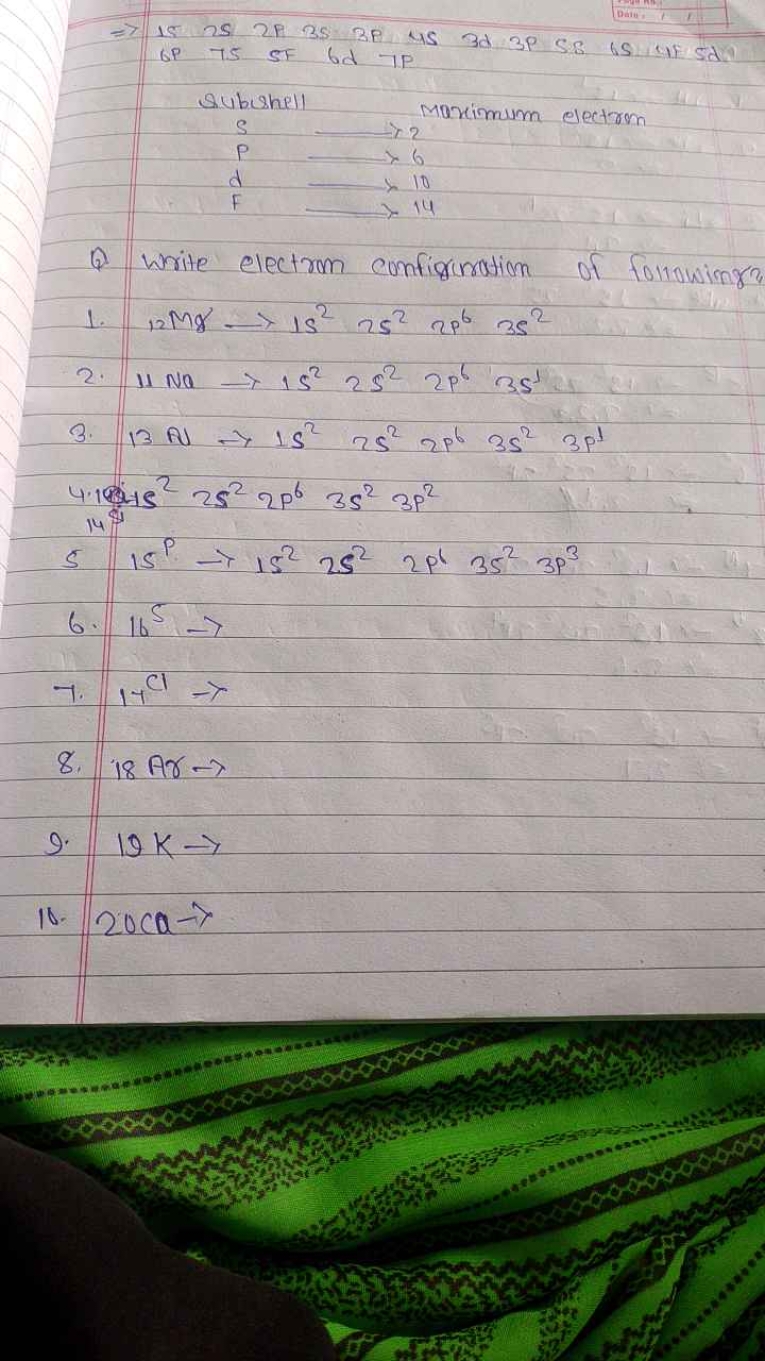 Page No.:
Date: / /
=> 1S 2S 2P 3S 3P 4S 3d 3P 5S 6S 4F 5d
6P 7S 5F 6d 7P
Subshell Maximum electron
S → 2
P → 6
d → 10
F → 14
Q Write electron configuration of following?
1. 12Mg → 1S² 2S² 2p⁶ 3S²
2. 11 Na → 1S² 2S² 2p⁶ 3S¹
3. 13 Al → 1S² 2S² 2p⁶ 3S² 3p¹
4. 1S² 2S² 2p⁶ 3S² 3p²
14 Si
5 15 P → 1S² 2S² 2p⁶ 3S² 3p³
6. 16 S →
7. 17 Cl →
8. 18 Ar →
9. 19 K →
10. 20 Ca →